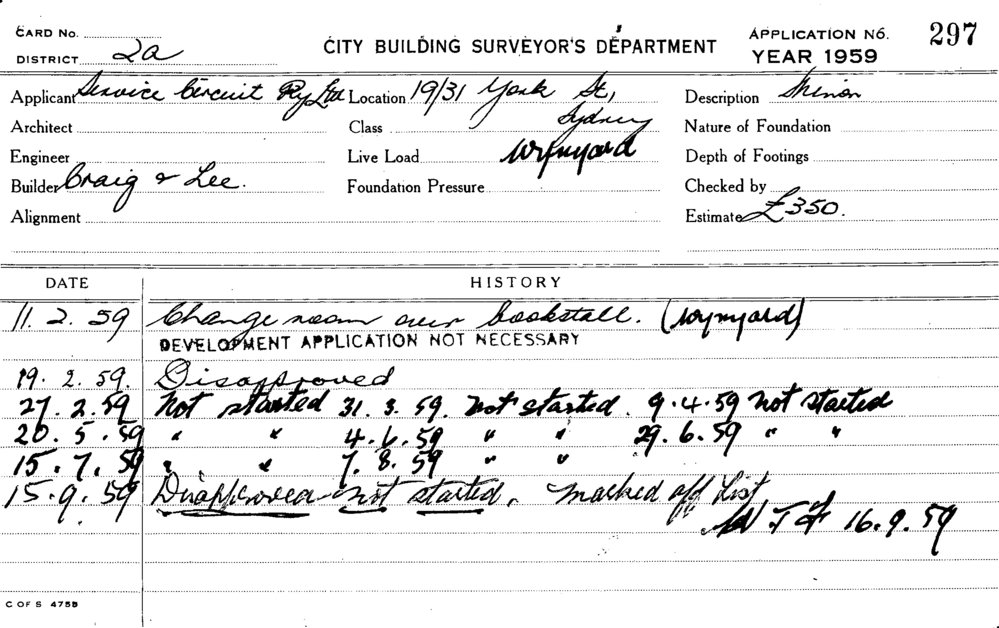 CARD No.
DISTRICT 2a
CITY BUILDING SURVEYOR'S DEPARTMENT
APPLICATION No. 297
YEAR 1959
Applicant Service Circuit Pty Ltd Location 19/31 York St, Description Minor
Architect Class Sydney Nature of Foundation
Engineer Live Load Wynyard Depth of Footings
Builder Craig & Lee. Foundation Pressure Checked by
Alignment Estimate £350.
DATE HISTORY
11. 2. 59 Change room over bookstall. (Wynyard)
DEVELOPMENT APPLICATION NOT NECESSARY
19. 2. 59. Disapproved
27. 2. 59 Not started 31. 3. 59. Not started. 9. 4. 59 Not started
20. 5. 59 " " 4. 6. 59 " " 29. 6. 59 " "
15. 7. 59 " " 7. 8. 59 " "
15. 9. 59 Disapproved not started. Marked off List
16. 9. 59
C OF S 475B